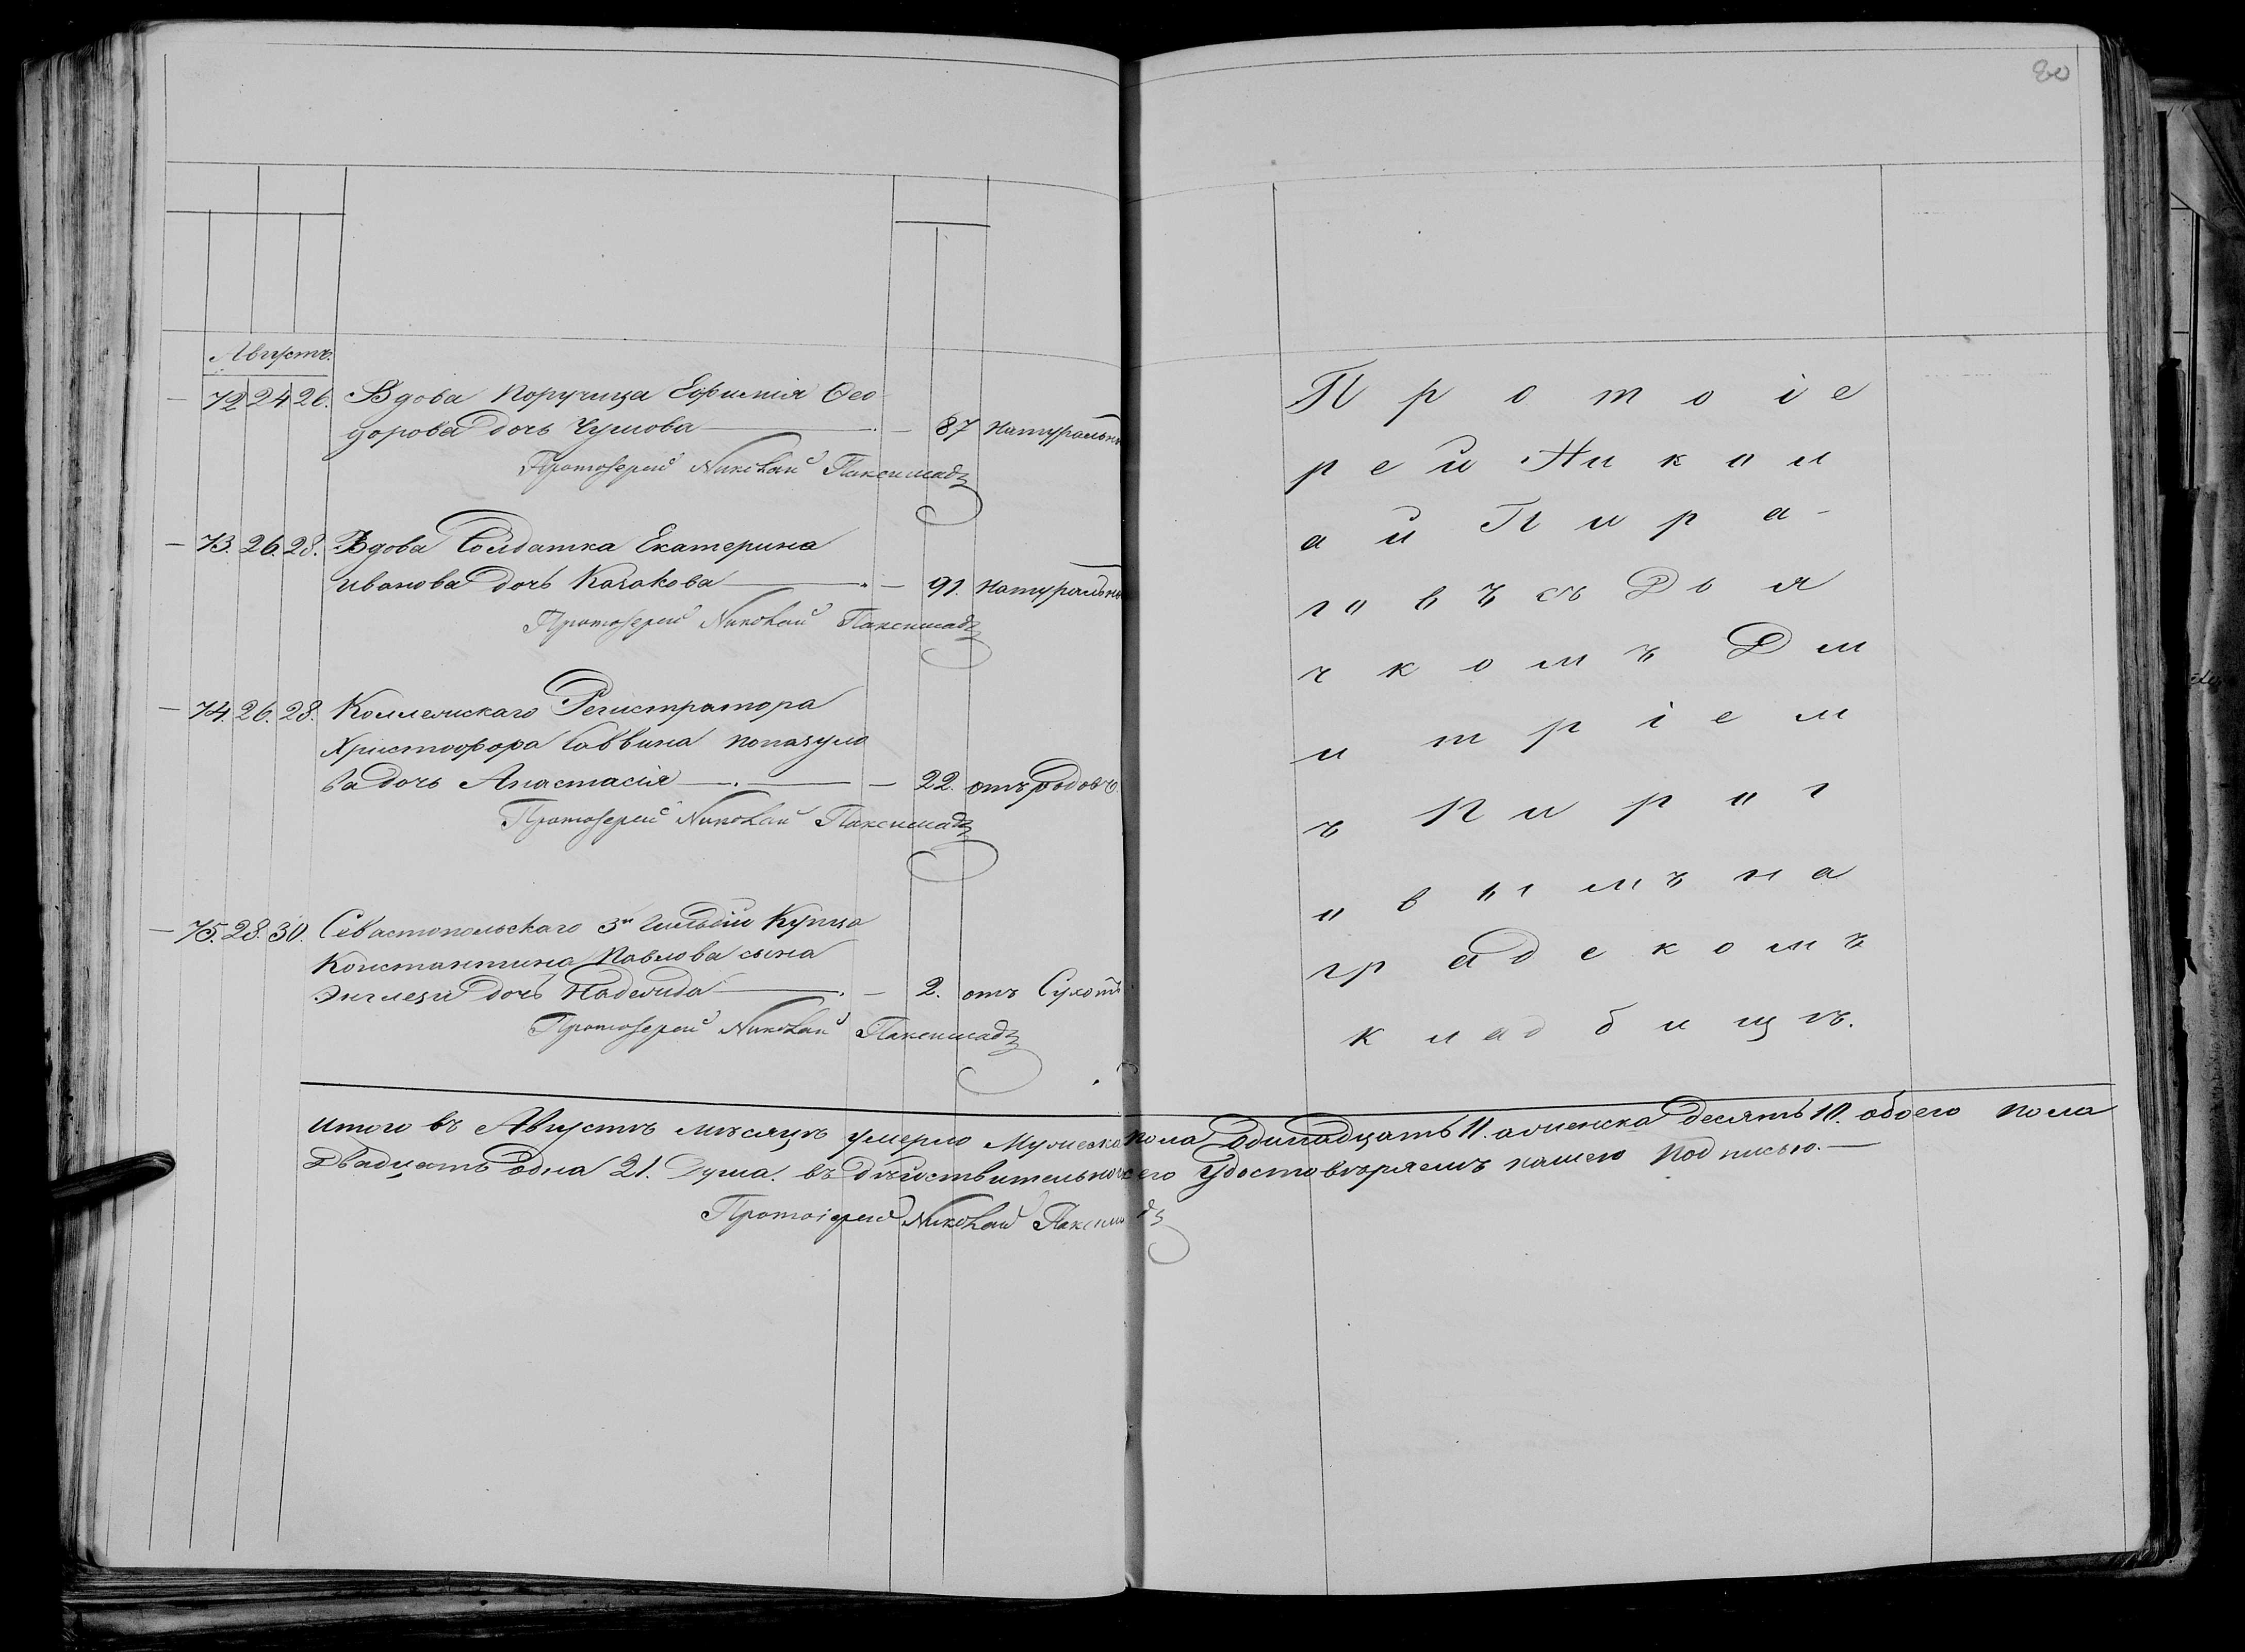 80
Августъ.
— 72 24 26. Вдова поручица Ефимія Ѳео
дорова дочь Чумова — 87 Натуральн
Протоіерей Николай Паксимадъ
— 73. 26. 28. Вдова Солдатка Екатерина
Иванова дочь Качакова — 91. Натуральн
Протоіерей Николай Паксимадъ
— 74. 26. 28. Коллежскаго Регистратора
Христофора Саввина Попазуло
ва дочь Анастасія — 22. отъ родовъ.
Протоіерей Николай Паксимадъ
— 75. 28. 30. Севастопольскаго 3й Гильдіи Купца
Константина Павлова сына
Энглези дочь Надежда — 2. отъ Сухот
Протоіерей Николай Паксимадъ
Протоіе
рей Никол
ай Пира-
говъ съ Дья
чкомъ Дм
итріем
ъ Пирог
овымъ на
градскомъ
кладбищѣ.
Итого въ Августѣ мѣсяцѣ умерло Мужеска пола одинадцать 11. а женска десять 10. обоего пола
двадцать одна 21. Душа. въ дѣйствительности сего удостовѣряемъ нашею подписью. —
Протоіерей Николай Паксимадъ